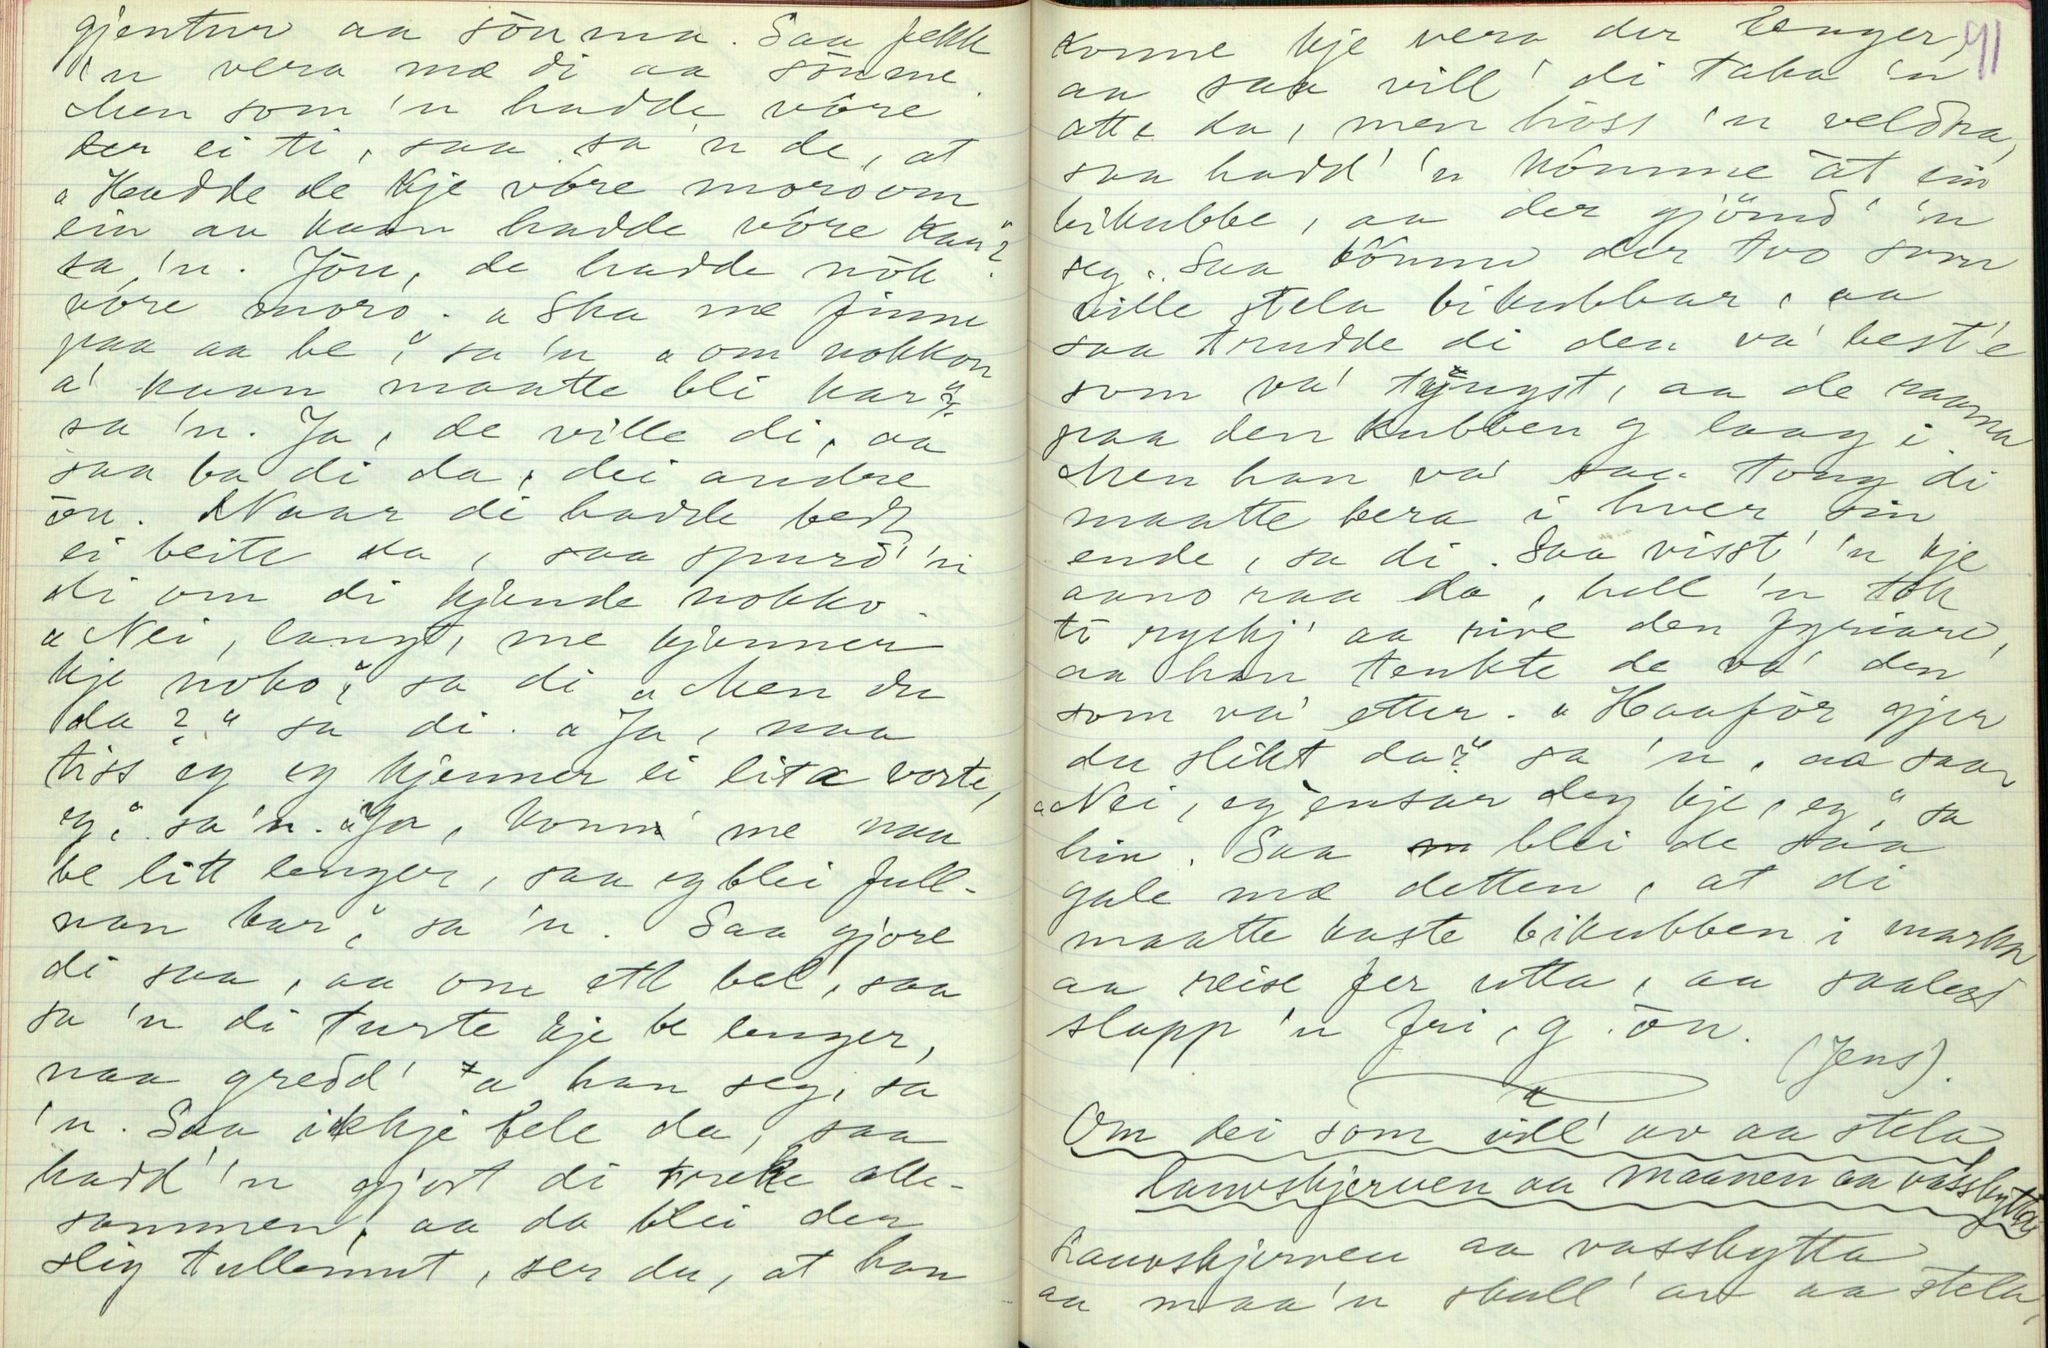 gjentur aa sōnma. Saa fekk
'n vera mæ di aa sōnme.
Men som 'n hadde vōre
der ei ti, saa sa 'n de, at
„Hadde de kje vōre moro om
ein au kvan hadde vōre kar?"
sa 'n. Jōu, de hadde nōk
vōre moro. „Ska me finne
paa aa be," sa 'n „om nokkon
a' kvan maatte bli kar?"
sa 'n. Ja, de ville di, aa
saa ba di da, dei andre
ōn. Naar di hadde bedt
ei beite da, saa spurd' 'n
di om di kjende nokko.
„Nei, langt, me kjenner
kje noko," sa di „Men du
da?" sa di. „Ja, naa
tiss eg eg kjenner ei lita vorte,
eg," sa 'n. „Ja, konn' me naa
be litt lenger, saa eg blei full-
nan kar," sa 'n. Saa gjore
di saa, aa om ett bel, saa
sa 'n di turte kje be lenger,
naa gredd' a han seg, sa
'n. Saa ikkje bele da, saa
hadd' 'n gjort di treke alle-
sammen, aa da blei der
slig tullemut, ser du, at han
91
konne kje vera der lenger,
aa saa vill' di taka 'n
atte da, men hōss 'n veldna,
saa hadd' 'n kōmme at ein
bikubbe, aa der gjōmd' 'n
seg. Saa kōmme der tvo som
ville stela bikubbar, aa
saa trudde di den va' best'e
som va' tyngst, aa de raama
paa den kubben g laag i
Men han va' saa tong di
maatte bera i hver sin
ende, sa di. Saa visst' 'n kje
aano raa da, hell 'n tok
ti ryskj' aa rive den fyriare,
aa han tenkte de va' den
som va' etter. „Haafōr gjer
du slikt da?" sa 'n, aa saa
„Nei, eg ensar deg kje, eg," sa
hin. Saa blei de saa
gale mæ detten, at di
maatte kaste bikubben i marka
aa reise fer utta, aa saalest
slapp 'n fri, g ōn.
(Jens).
Om dei som vill' av aa stela
lauvskjerven aa maanen aa vassbytta
Lauvskjerven aa vassbytta
aa maa'n skull' av aa stela,